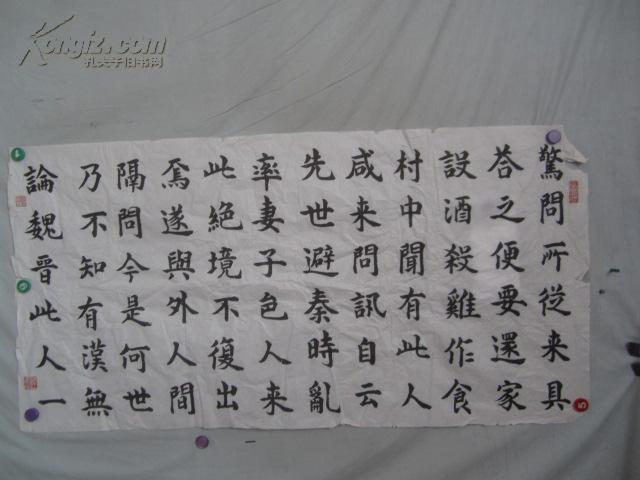 驚問所従来具
荅之便要還家
設酒殺雞作食
村中聞有此人
咸来問訊自云
先世避秦時亂
率妻子邑人来
此絕境不復出
焉遂與外人間
隔問今是何世
乃不知有漢無
論魏晉此人一
Kongfz.com
孔夫子旧书网
5